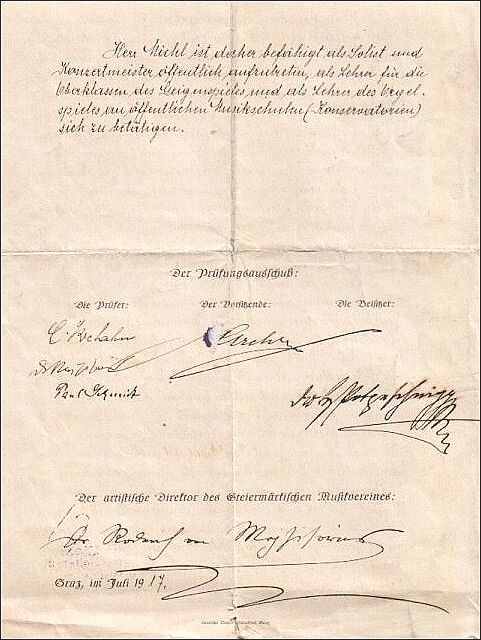 Herr Michl ist daher befähigt als Solist und
Konzertmeister öffentlich aufzutreten, als Lehrer für die
Oberklassen des Geigenspieles und als Lehrer des Orgel-
spieles an öffentlichen Musikschulen (Konservatorien)
sich zu betätigen.
Der Prüfungsausschuß:
Die Prüfer: Der Vorsitzende: Die Beisitzer:
Paul Schmidt
Der artistische Direktor des Steiermärkischen Musikvereines:
Dr. Roderich von Mojsisovics
Graz, im Juli 1917.